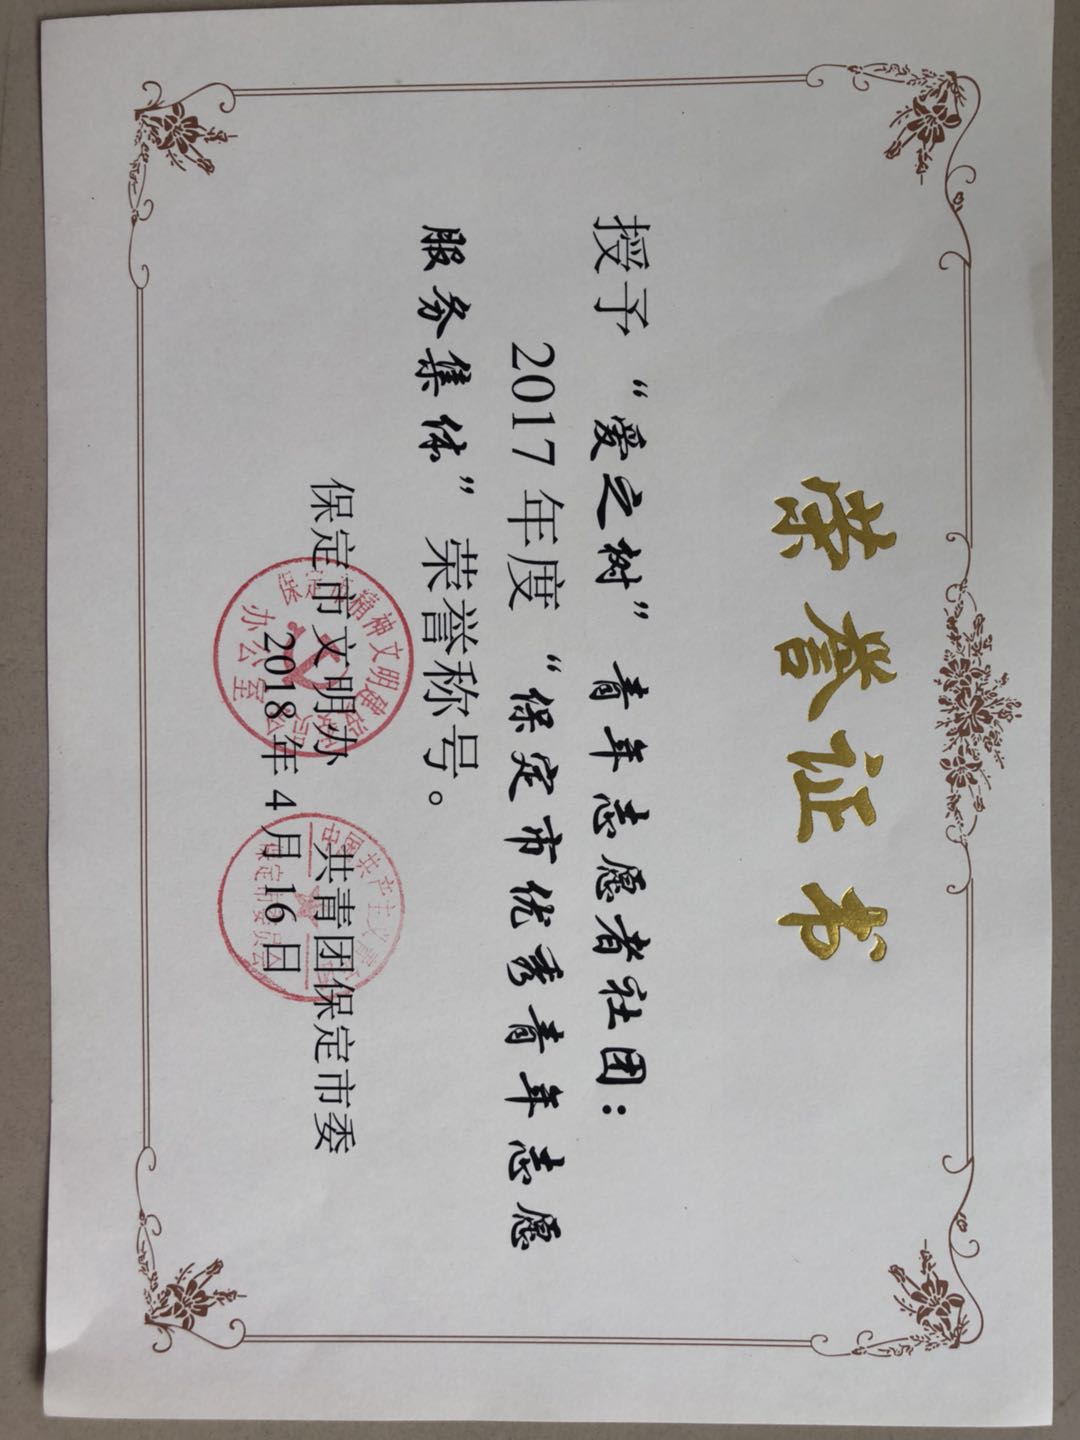 荣誉证书
授予“爱之树”青年志愿者社团：
2017年度“保定市优秀青年志愿
服务集体”荣誉称号。
保定市文明办 共青团保定市委
2018年4月16日
精神文明建设
办公室
中国共产主义青
保定市委员会